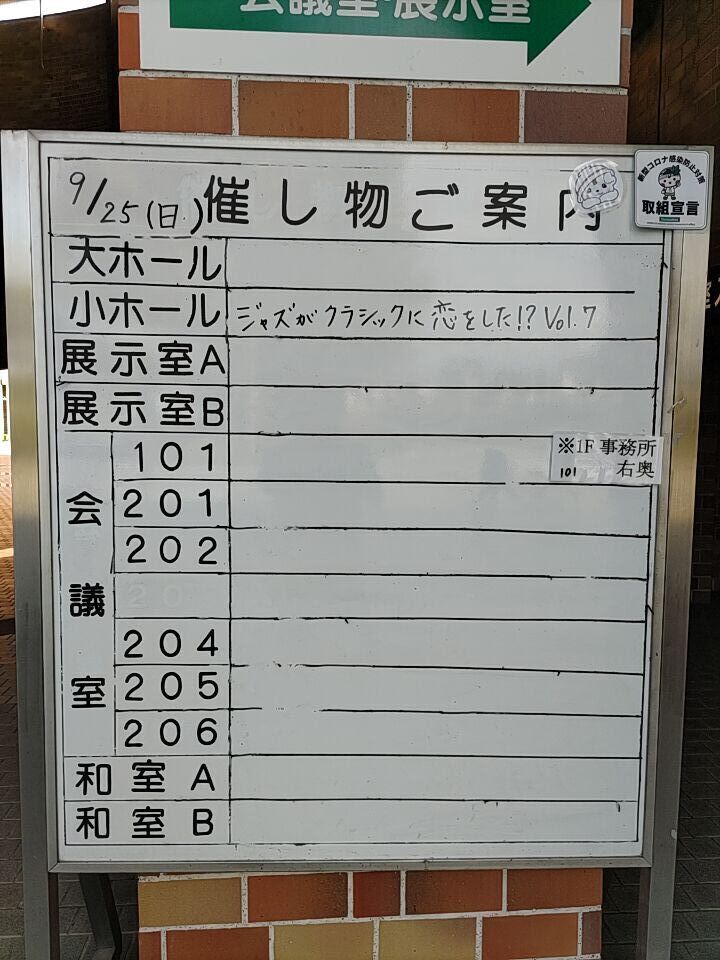 会議室・展示室
新型コロナ感染防止対策
取組宣言
9/25(日) 催し物ご案内
大ホール
小ホール ジャズがクラシックに恋をした!? Vol.7
展示室A
展示室B
会議室
101 ※1F 事務所
101 右奥
201
202
204
205
206
和室A
和室B